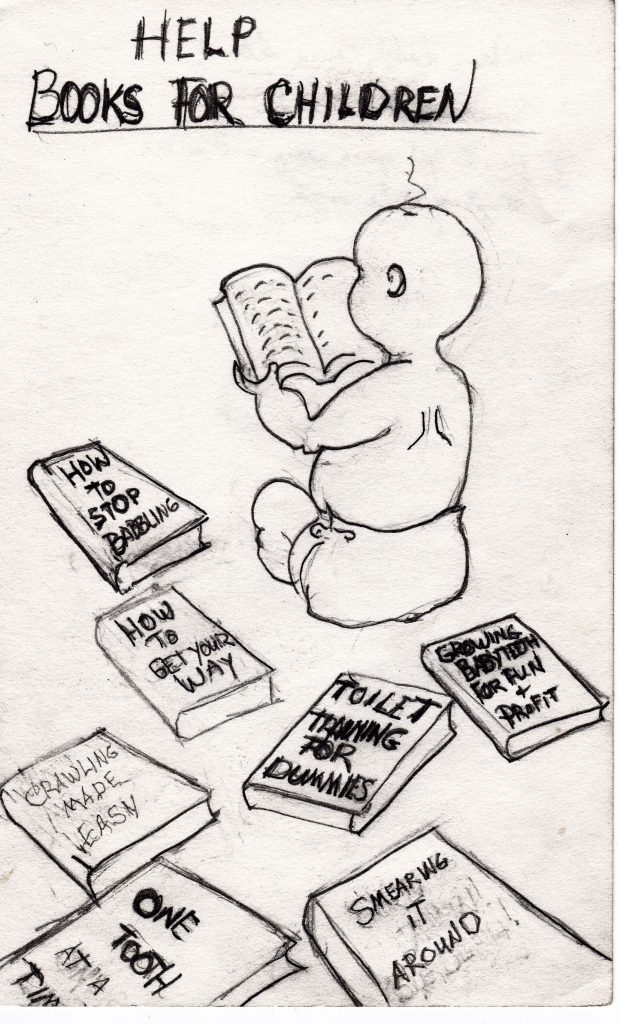 HELP
BOOKS FOR CHILDREN
HOW
TO
STOP
BABBLING
HOW
TO
GET YOUR
WAY
GROWING
BABYTOOTH
FOR FUN
+
PROFIT
TOILET
TRAINING
FOR
DUMMIES
CRAWLING
MADE
EASY
SMEARING
IT
AROUND
ONE
TOOTH
AT A
TIM